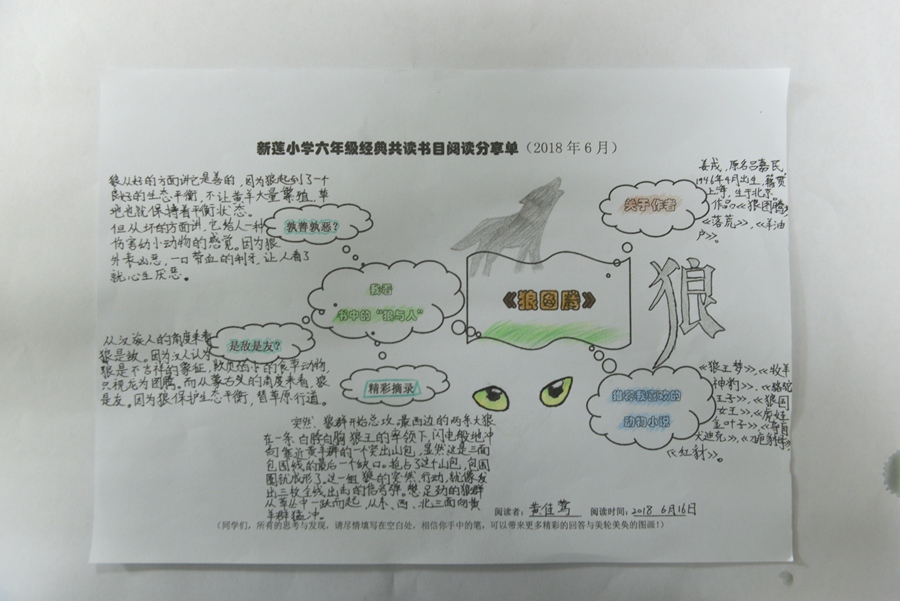 新莲小学六年级经典共读书目阅读分享单(2018年6月)
狼从好的方面讲它是善的，因为狼起到了一个
良好的生态平衡，不让黄羊大量繁殖，草
地也就保持着平衡状态。
但从坏的方面讲，它给人一种
伤害幼小动物的感觉。因为狼
外表凶恶，一口带血的利牙，让人看了
就心生厌恶。
孰善孰恶?
我看
书中的“狼与人”
是敌是友?
从汉族人的角度来看
狼是敌。因为汉人认为
狼是不吉祥的象征，
只视龙为图腾。而从蒙古族的角度来看，狼
是友。因为狼保护生态平衡，替草原行道。
精彩摘录
突然，狼群开始总攻。最西边的两条大狼
在一条白脖白胸狼王的率领下，闪电般地冲
向靠近黄羊群的一个突出山包，显然这是三面
包围线的最后一个缺口。抢占了这个山包，包围
圈就成形了。这一组狼的突然行动，就像发
出三枚全线出击的信号弹。憋足劲的狼群
从草丛中一跃而起，从东、西、北三面向黄
羊群猛冲。
《狼图腾》
关于作者
姜戎，原名吕嘉民
1946年4月出生，籍贯
上海，生于北京
作品《狼图腾》
《落荒》，《羊油
户》。
狼
动物小说
《狼王梦》，《牧羊
神豹》，《骆驼
王子》，《狼国
女王》，
《红豺》。
阅读者：黄佳莺 阅读时间：2018 6月16日
(同学们，所有的思考与发现，请尽情填写在空白处，相信你手中的笔，可以带来更多精彩的回答与美轮美奂的图画!)